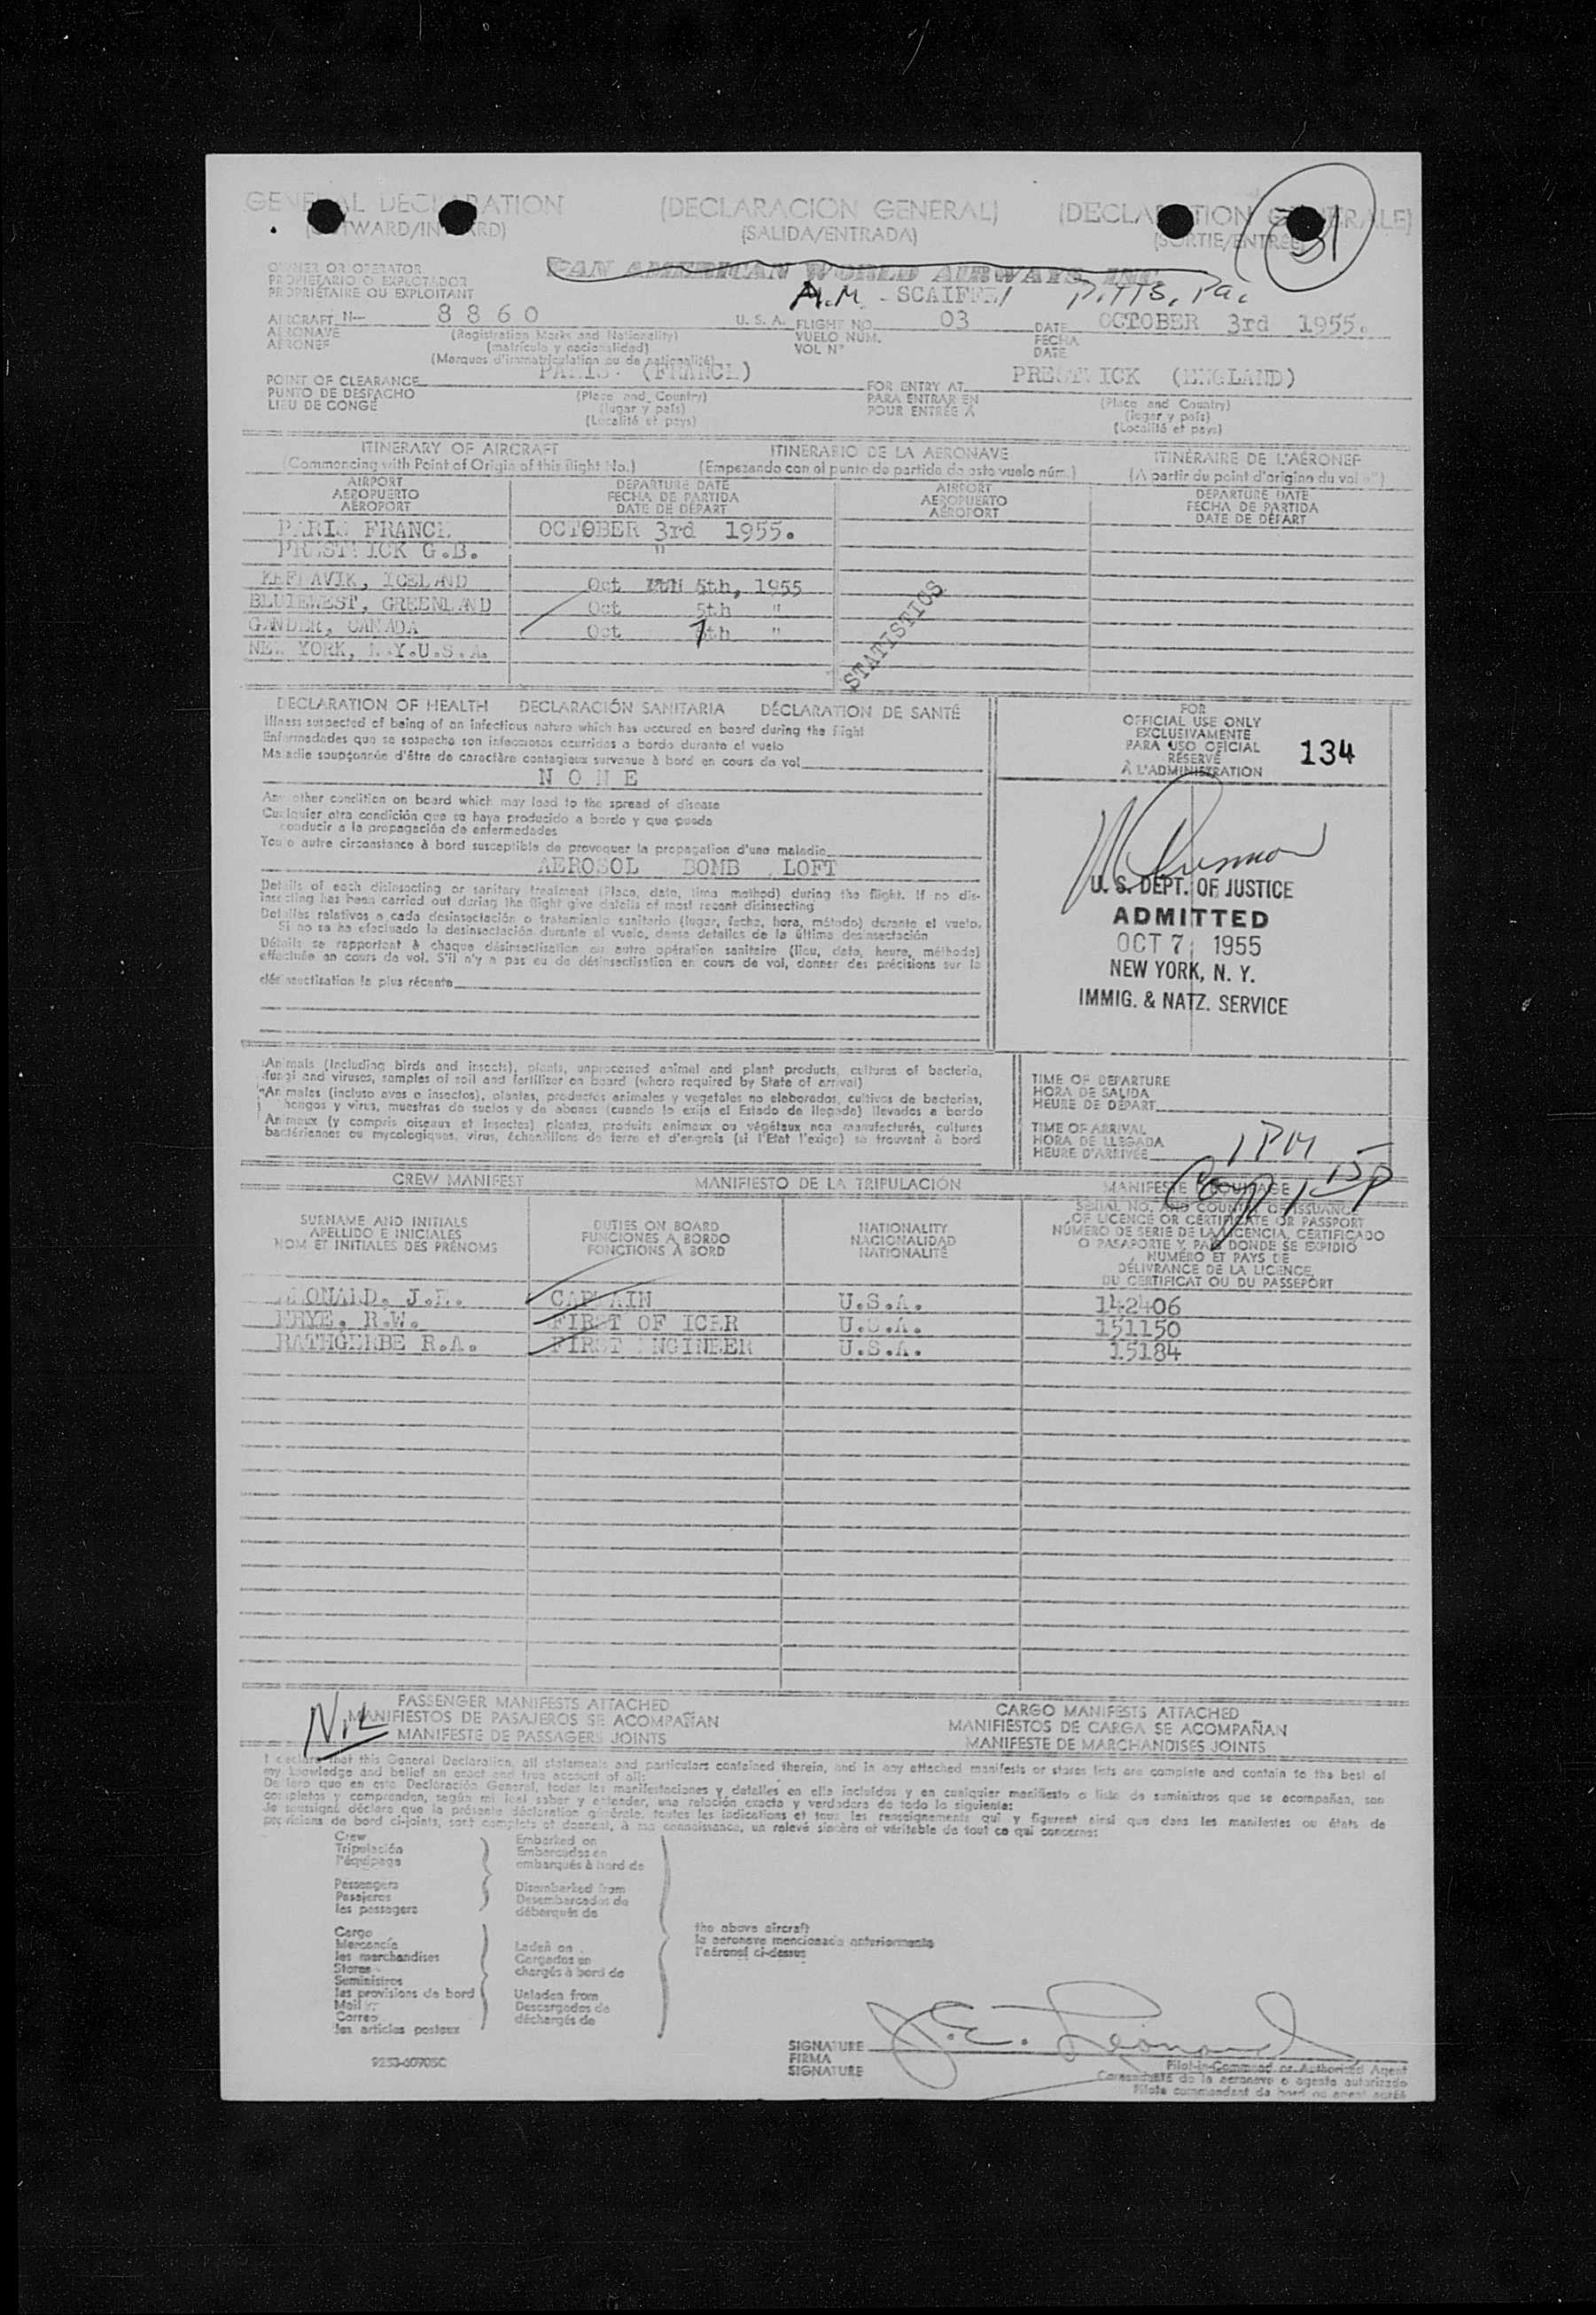 GENERAL DECLARATION (DECLARACION GENERAL) (DECLARATION GENERALE)
(OUTWARD/INWARD) (SALIDA/ENTRADA) (SORTIE/ENTREE)
31
OWNER OR OPERATOR PAN AMERICAN WORLD AIRWAYS, INC.
PROPIETARIO O EXPLOTADOR
PROPRIÉTAIRE OU EXPLOITANT A.M. SCAIFFE/ PITTS, Pa.
AIRCRAFT N- 8 8 6 0 U. S. A. FLIGHT NO. 03 DATE OCTOBER 3rd 1955.
AERONAVE (Registration Marks and Nationality) VUELO NUM. FECHA
AERONEF (matrícula y nacionalidad) VOL Nº DATE
(Marques d'immatriculation ou de nationalité)
POINT OF CLEARANCE PARIS. (FRANCE) FOR ENTRY AT PRESTWICK (ENGLAND)
PUNTO DE DESPACHO (Place and Country) PARA ENTRAR EN (Place and Country)
LIEU DE CONGÉ (lugar y país) POUR ENTRÉE À (lugar y país)
(Localité et pays) (Localité et pays)
ITINERARY OF AIRCRAFT ITINERARIO DE LA AERONAVE ITINÉRAIRE DE L'AÉRONEF
(Commencing with Point of Origin of this flight No.) (Empezando con el punto de partida de este vuelo núm.) (A partir du point d'origine du vol nº)
AIRPORT DEPARTURE DATE AIRPORT DEPARTURE DATE
AEROPUERTO FECHA DE PARTIDA AEROPUERTO FECHA DE PARTIDA
AÉROPORT DATE DE DÉPART AÉROPORT DATE DE DÉPART
PARIS FRANCE OCTOBER 3rd 1955.
PRESTWICK G.B. "
KEFLAVIK, ICELAND Oct 5th, 1955
BLUIEWEST, GREENLAND Oct 5th "
GANDER, CANADA Oct 7th "
NEW YORK, N.Y.U.S.A.
STATISTICS
DECLARATION OF HEALTH DECLARACIÓN SANITARIA DÉCLARATION DE SANTÉ
Illness suspected of being of an infectious nature which has occured on board during the flight
Enfermedades que se sospecha son infecciosas ocurridas a bordo durante el vuelo
Maladie soupçonnée d'être de caractère contagieux survenue à bord en cours de vol
N O N E
Any other condition on board which may lead to the spread of disease
Cualquier otra condición que se haya producido a bordo y que pueda
conducir a la propagación de enfermedades
Toute autre circonstance à bord susceptible de provoquer la propagation d'une maladie
AEROSOL BOMB LOFT
Details of each disinsecting or sanitary treatment (Place, date, time method) during the flight. If no dis-
insecting has been carried out during the flight give details of most recent disinsecting
Detalles relativos a cada desinsectación o tratamiento sanitario (lugar, fecha, hora, método) durante el vuelo.
Si no se ha efectuado la desinsectación durante el vuelo, dense detalles de la última desinsectación
Détails se rapportant à chaque désinsectisation ou autre opération sanitaire (lieu, date, heure, méthode)
effectuée en cours de vol. S'il n'y a pas eu de désinsectisation en cours de vol, donner des précisions sur la
désinsectisation la plus récente
FOR
OFFICIAL USE ONLY
EXCLUSIVAMENTE
PARA USO OFICIAL 134
RÉSERVÉ
À L'ADMINISTRATION
U. S. DEPT. OF JUSTICE
ADMITTED
OCT 7 1955
NEW YORK, N. Y.
IMMIG. & NATZ. SERVICE
Animals (Including birds and insects), plants, unprocessed animal and plant products, cultures of bacteria,
fungi and viruses, samples of soil and fertilizer on board (where required by State of arrival)
Animales (incluso aves o insectos), plantas, productos animales y vegetales no elaborados, cultivos de bacterias,
hongos y virus, muestras de suelos y de abonos (cuando lo exija el Estado de llegada) llevados a bordo
Animaux (y compris oiseaux et insectes) plantes, produits animaux ou végétaux non manufacturés, cultures
bactériennes ou mycologiques, virus, échantillons de terre et d'engrais (si l'Etat l'exige) se trouvant à bord
TIME OF DEPARTURE
HORA DE SALIDA
HEURE DE DÉPART
TIME OF ARRIVAL
HORA DE LLEGADA
HEURE D'ARRIVÉE 1 PM
CREW MANIFEST MANIFIESTO DE LA TRIPULACIÓN MANIFESTE D'ÉQUIPAGE
SURNAME AND INITIALS DUTIES ON BOARD NATIONALITY SERIAL NO. AND COUNTRY OF ISSUANCE
APELLIDO E INICIALES FUNCIONES A BORDO NACIONALIDAD OF LICENCE OR CERTIFICATE OR PASSPORT
NOM ET INITIALES DES PRÉNOMS FONCTIONS À BORD NATIONALITÉ NÚMERO DE SERIE DE LA LICENCIA, CERTIFICADO
O PASAPORTE Y PAIS DONDE SE EXPIDIÓ
NUMÉRO ET PAYS DE
DÉLIVRANCE DE LA LICENCE,
DU CERTIFICAT OU DU PASSEPORT
J.E. CAPTAIN U.S.A. 142406
FRYE, R.W. FIRST OFICER U.S.A. 151150
RATHGERBE R.A. FIRST ENGINEER U.S.A. 15184
NiL
PASSENGER MANIFESTS ATTACHED CARGO MANIFESTS ATTACHED
MANIFIESTOS DE PASAJEROS SE ACOMPAÑAN MANIFIESTOS DE CARGA SE ACOMPAÑAN
MANIFESTE DE PASSAGERS JOINTS MANIFESTE DE MARCHANDISES JOINTS
I declare that this General Declaration, all statements and particulars contained therein, and in any attached manifests or stores lists are complete and contain to the best of
my knowledge and belief an exact and true account of all:
Declaro que en esta Declaración General, todas las manifestaciones y detalles en ella incluídos y en cualquier manifiesto o lista de suministros que se acompañan, son
completos y comprenden, según mi leal saber y entender, una relación exacta y verdadera de todo lo siguiente:
Je soussigné déclare que la présente déclaration générale, toutes les indications et tous les renseignements qui y figurent ainsi que dans les manifestes ou états de
provisions de bord ci-joints, sont complets et donnent, à ma connaissance, un relevé sincère et véritable de tout ce qui concerne:
Crew Embarked on
Tripulación Embarcados en
l'équipage embarqués à bord de
Passengers Disembarked from
Pasajeros Desembarcados de
les passagers débarqués de
Cargo the above aircraft
Mercancía Laden on la aeronave mencionada anteriormente
les marchandises Cargados en l'aéronef ci-dessus
Stores chargés à bord de
Suministros
les provisions de bord Unladen from
Mail Descargados de
Correo déchargés de
les articles postaux
SIGNATURE J. E. Leonard
FIRMA Pilot-in-Command or Authorized Agent
SIGNATURE Comandante de la aeronave o agente autorizado
Pilote commandant de bord ou agent agréé
9253-60705C